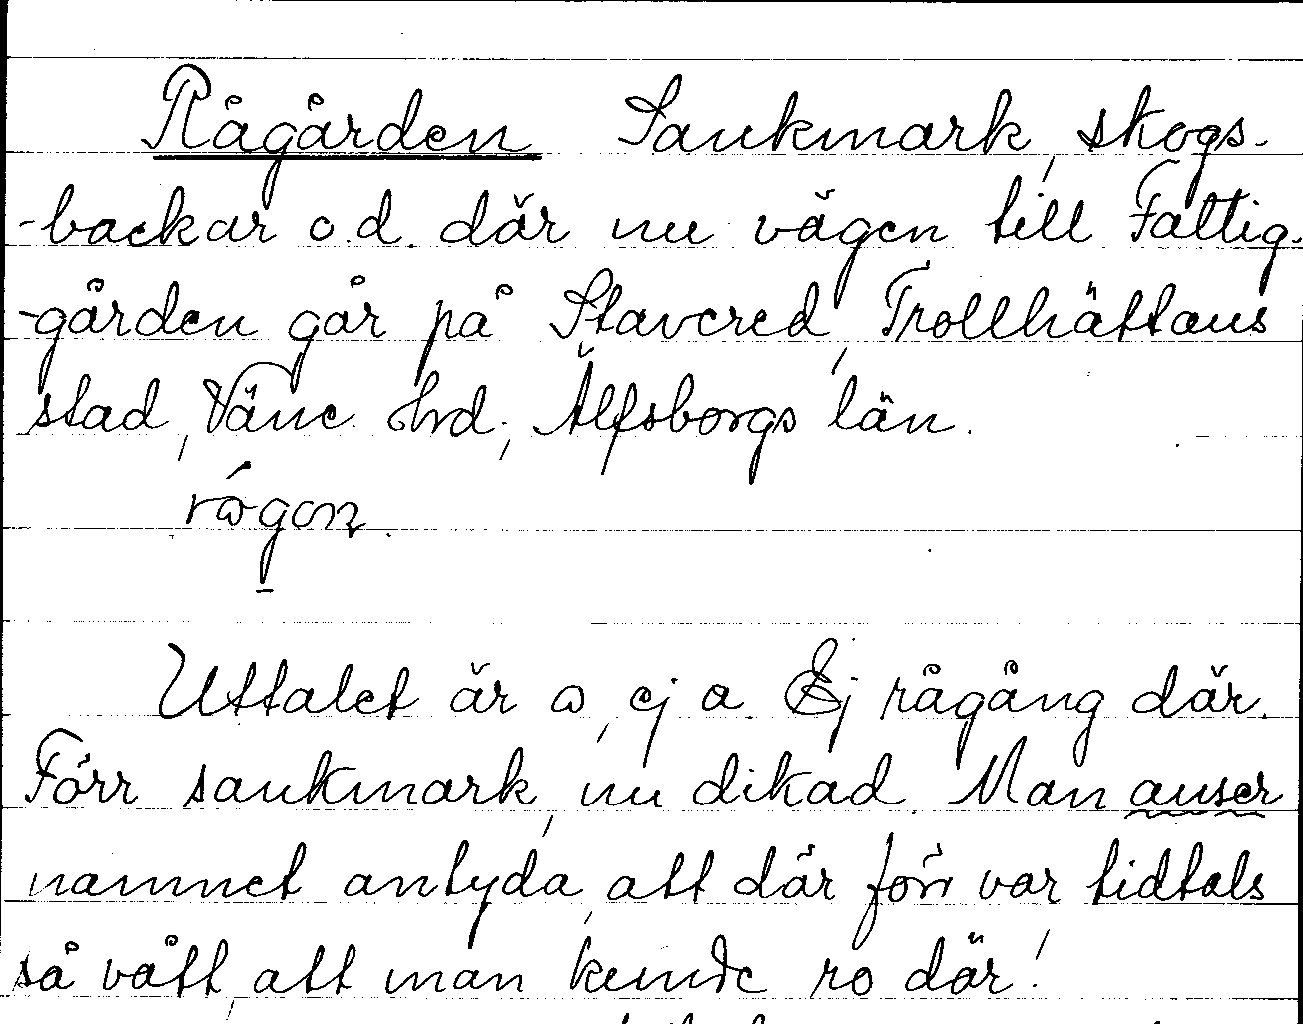 Rågården Sankmark, skogs-
-backar o.d. där nu vägen till Fattig-
-gården går på Stavered, Trollhättans
stad, Väne hd., Älfsborgs län.
rɷ́gon.
Uttalet är ɷ, ej a. Ej rågång där.
Förr sankmark, nu dikad. Man anser
namnet antyda, att där förr var tidtals
så vått, att man kunde ro där!